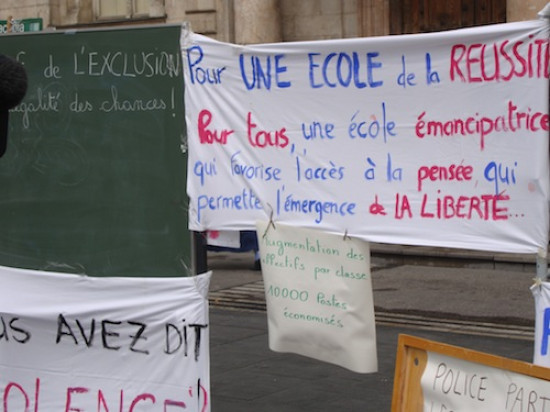 de L'EXCLUSION
égalité des chances !
Pour UNE ECOLE de la REUSSITE
Pour tous, une école émancipatrice
qui favorise l'accès à la pensée, qui
permette l'émergence de LA LIBERTÉ...
Augmentation des
effectifs par classe
10000 Postes
économisés
AVEZ DIT
POLICE PART